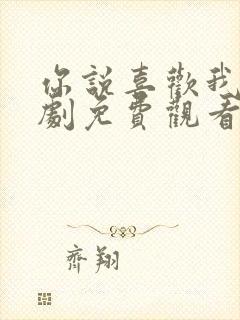 你說喜歡我
劇免費觀看
齊翔